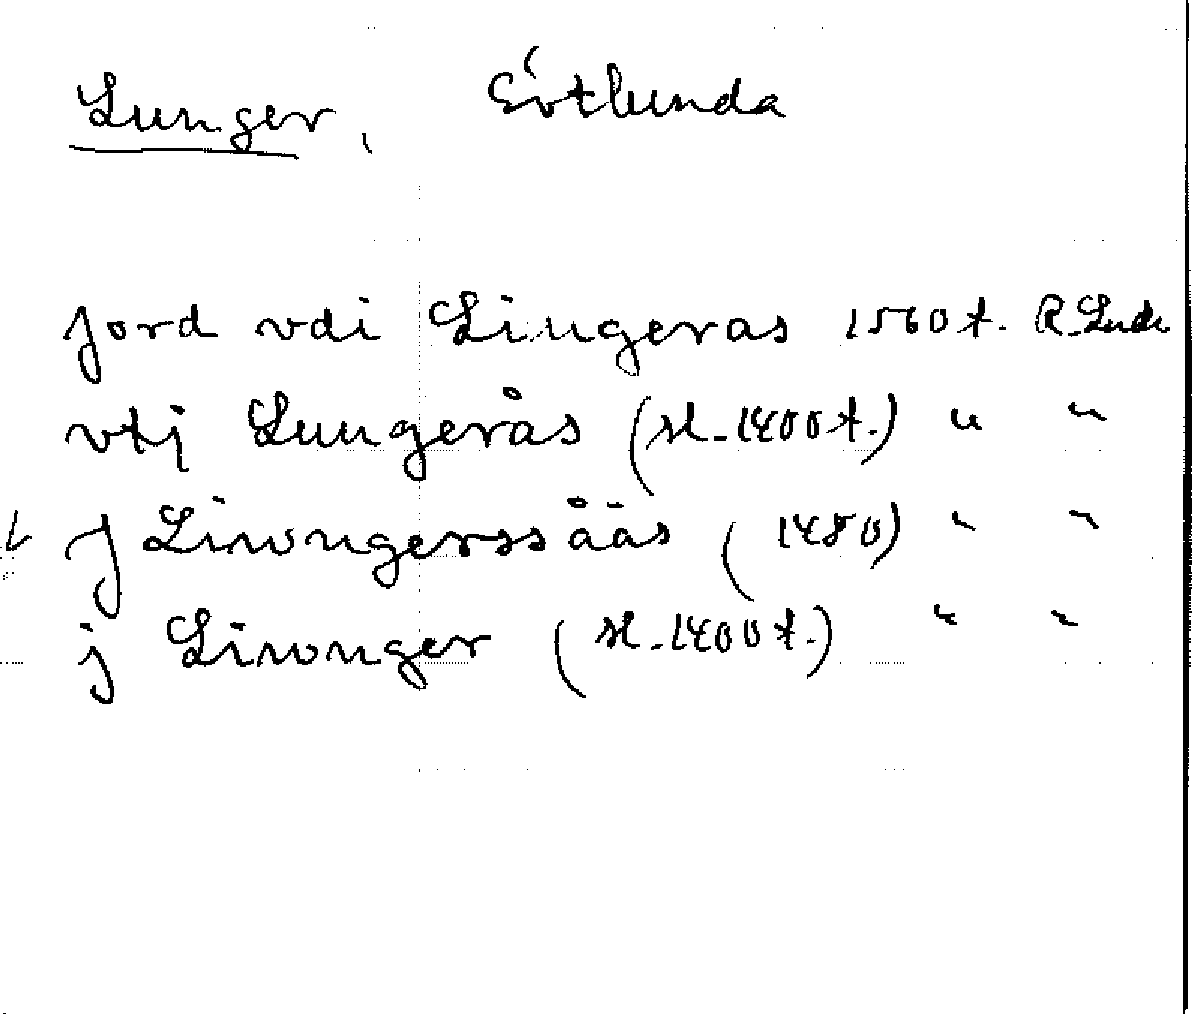 Lunger, Götlunda
jord vdi Liungeras 1560 t. R. Lude
vtj Liungerås (sl. 1400 t.) " "
j Liwngerssåås (1480) " "
j Liwnger (sl. 1400 t.) " "